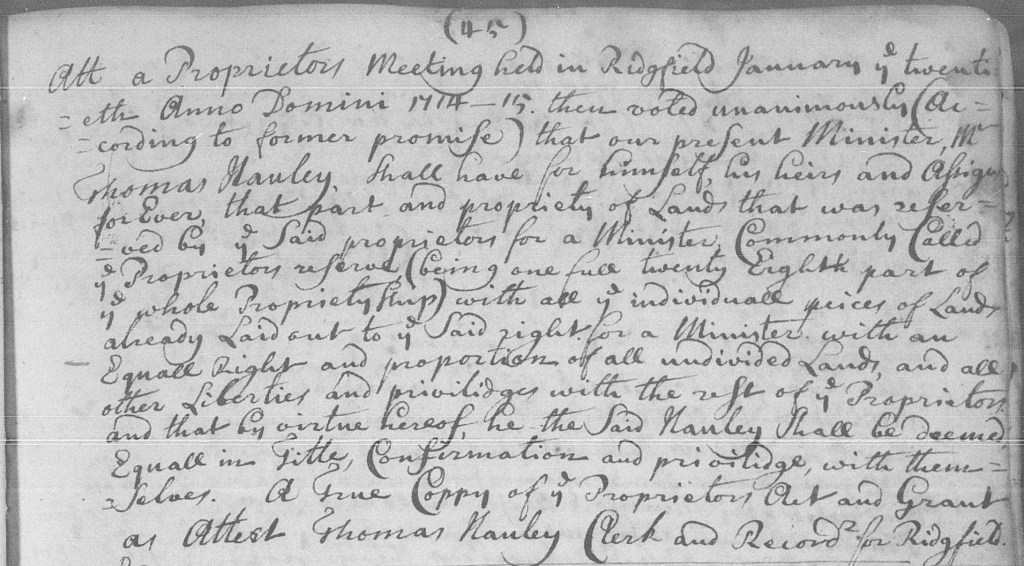 (45)
Att a Proprietors Meeting held in Ridgfield January yᵉ twenti
=eth Anno Domini 1714-15. then voted unanimously (Ac=
=cording to former promise) that our present Minister, Mʳ
Thomas Hauley. Shall have for himself, his heirs and Assigns
for Ever, that part and propriety of Lands that was reser=
=ved by yᵉ Said proprietors for a Minister, Commonly Called
yᵉ Proprietors reserve (being one full twenty Eighth part of
yᵉ whole Proprietyship) with all yᵉ individuall peices of Lands
already Laid out to yᵉ Said right for a Minister with an
Equall Right and proportion of all undivided Lands, and all
other Liberties and privilidges with the rest of yᵉ Proprietors,
and that by virtue hereof, he the Said Hauley Shall be deemed,
Equall in Title, Confirmation and privilidge, with them=
=Selves. A True Coppy of yᵉ Proprietors Act and Grant
as Attest Thomas Hauley Clerk and Recordʳ for Ridgfield.